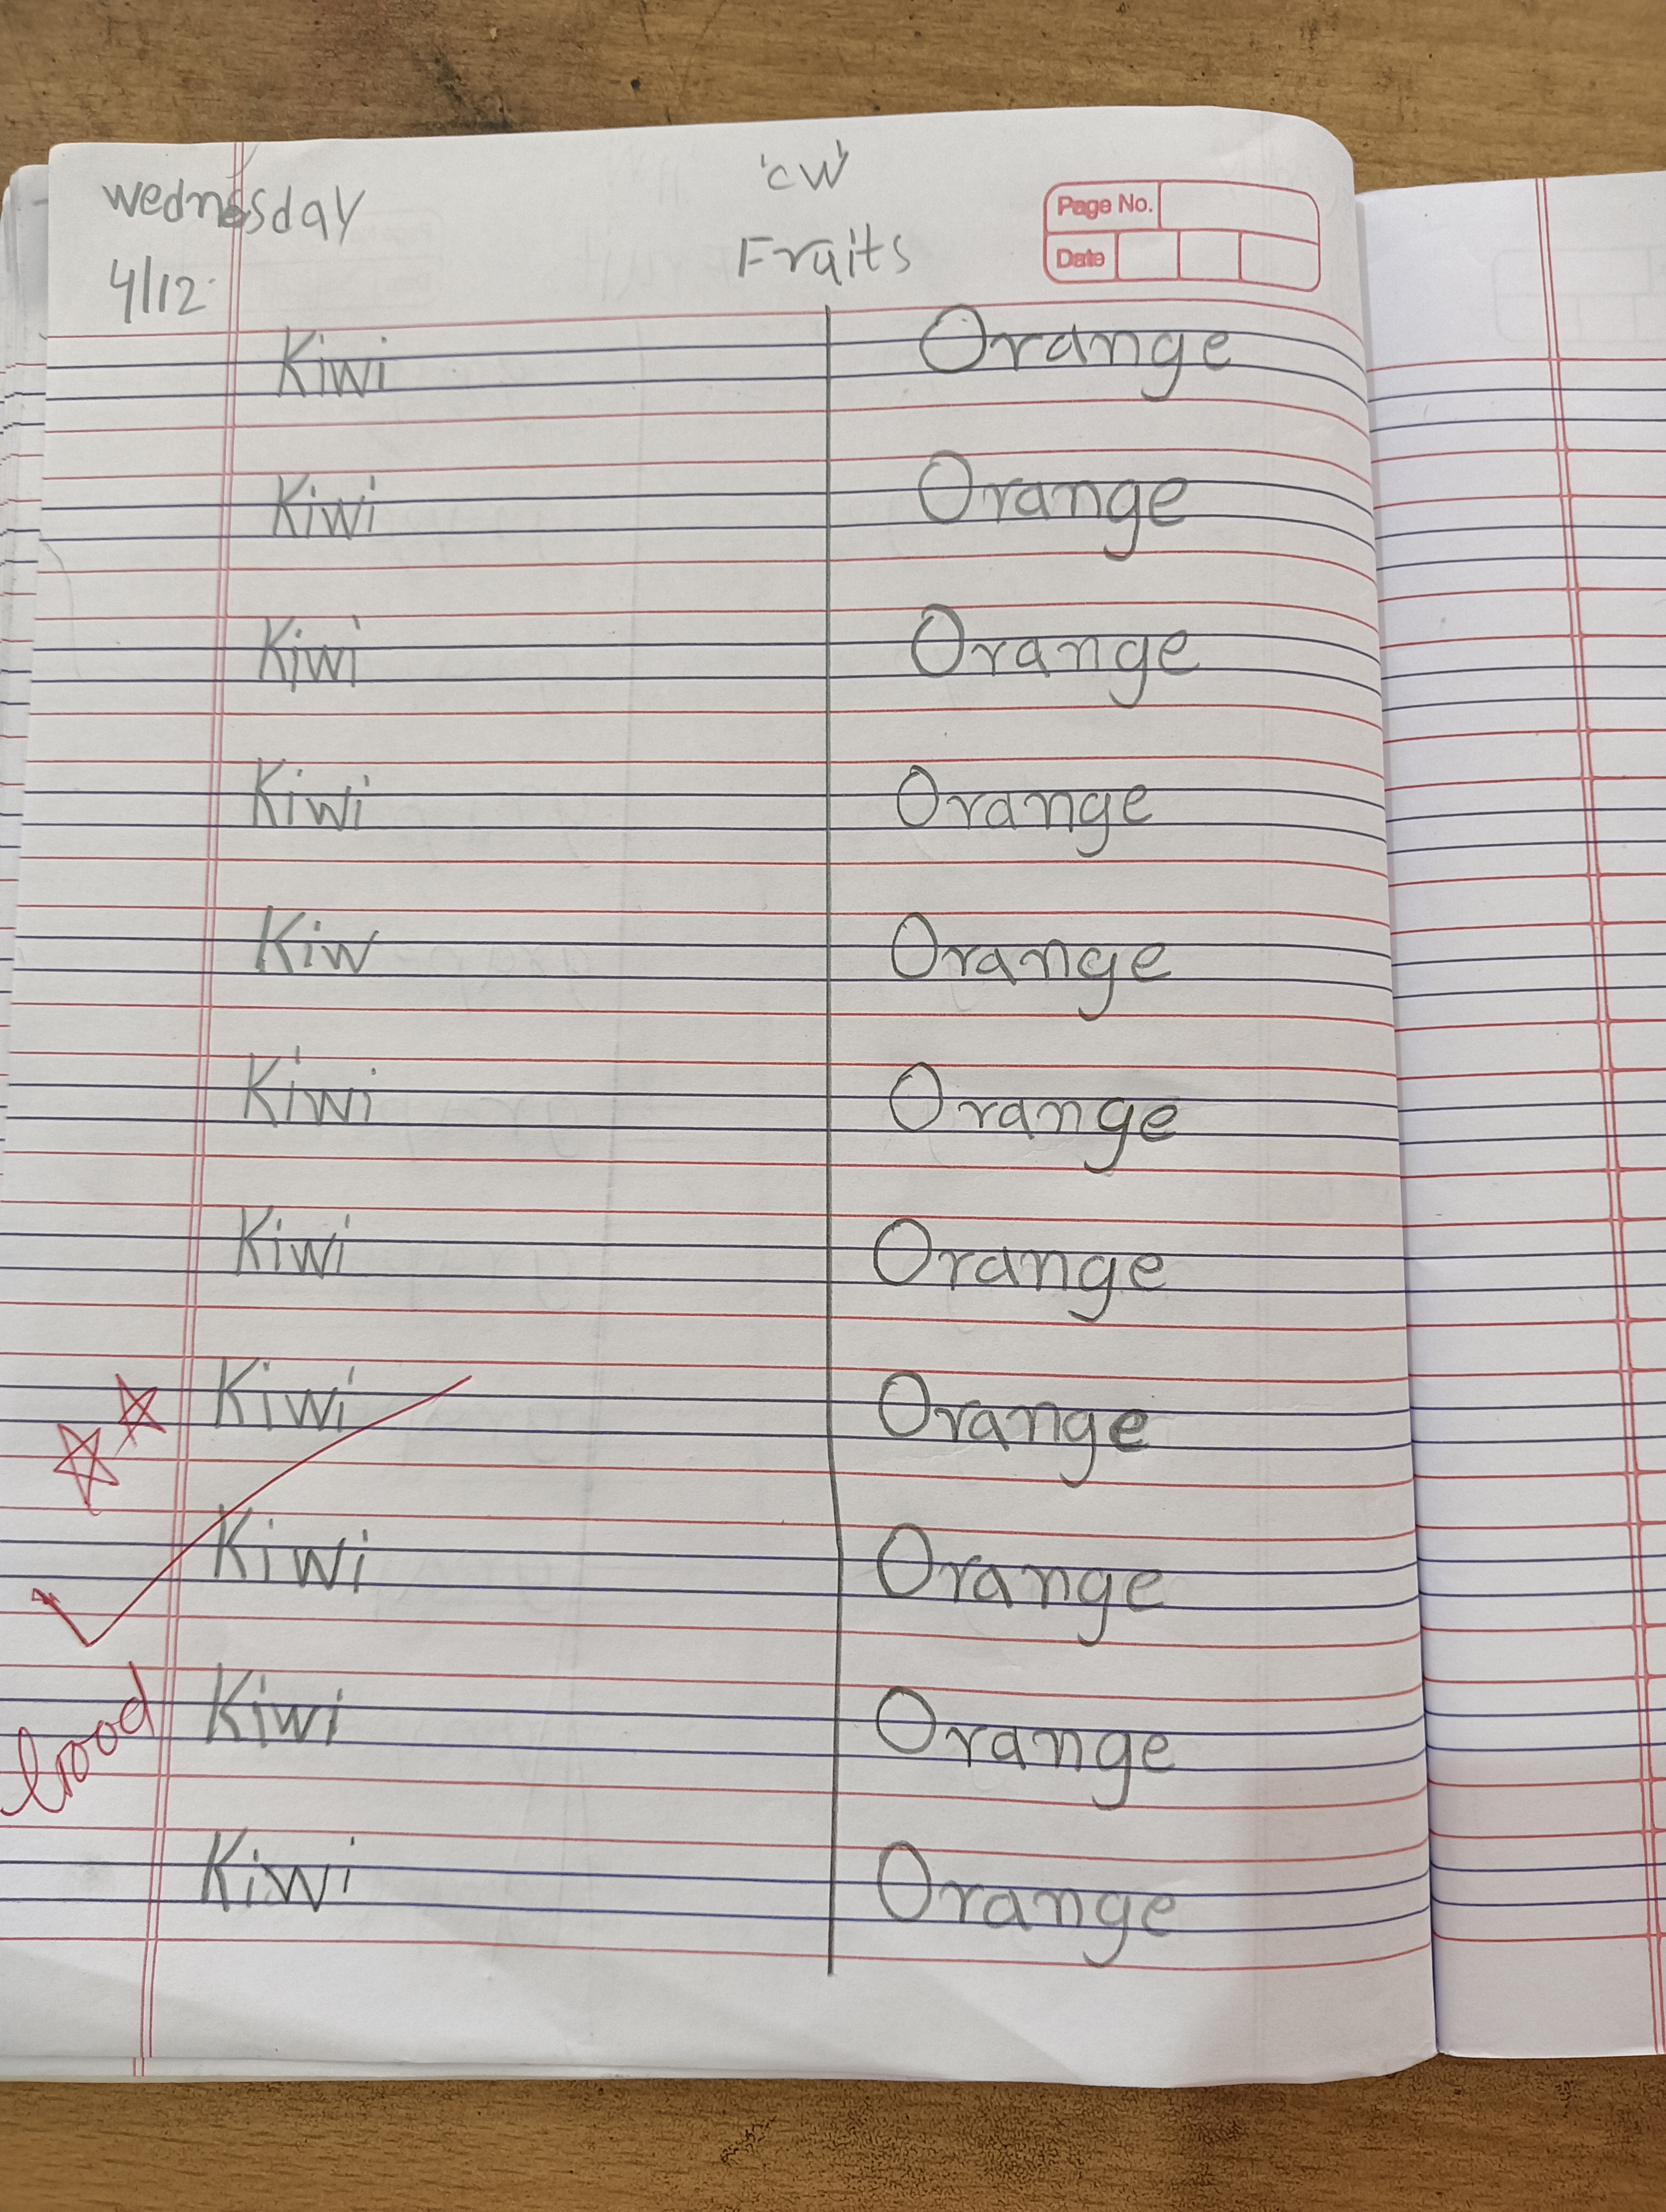 'cw'
wednesday
Fruits
Page No.
4/12
Date
Kiwi Orange
Kiwi Orange
Kiwi Orange
Kiwi Orange
Kiw Orange
Kiwi Orange
Kiwi Orange
Kiwi Orange
Kiwi Orange
Good
Kiwi Orange
Kiwi Orange